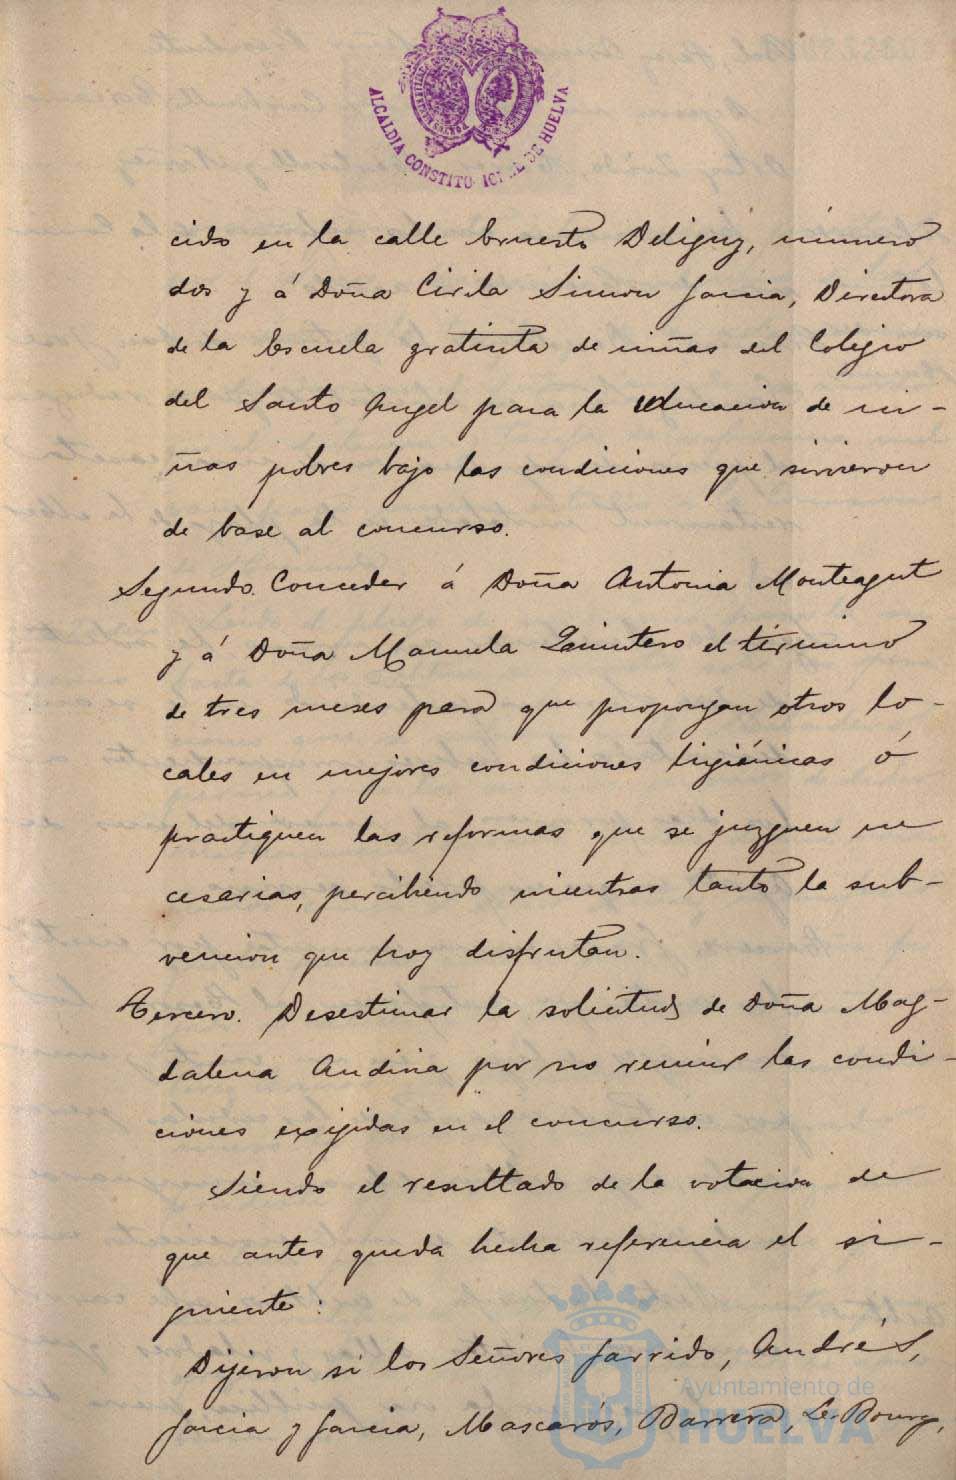 ALCALDIA CONSTITUCIONAL DE HUELVA
cido en la calle Ernesto Deligny, número
dos y á Doña Cirila Simon Garcia, Directora
de la Escuela gratuita de niñas del Colegio
del Santo Angel para la educacion de ni-
ñas pobres bajo las condiciones que sirvieron
de base al concurso.
Segundo. Conceder á Doña Antonia Monteagut
y á Doña Manuela Quintero el término
de tres meses para que propongan otros lo-
cales en mejores condiciones higiénicas ó
practiquen las reformas que se juzguen ne
cesarias, percibiendo mientras tanto la sub-
vencion que hoy disfrutan.
Tercero. Desestimar la solicitud de Doña Mag-
dalena Andina por no reunir las condi-
ciones exijidas en el concurso.
Siendo el resultado de la votacion de
que antes queda hecha referencia el si-
guiente:
Dijeron si los Señores Garrido, André S,
Garcia y Garcia, Mascarós, Barrera, Le Bourg,
Ayuntamiento de
HUELVA